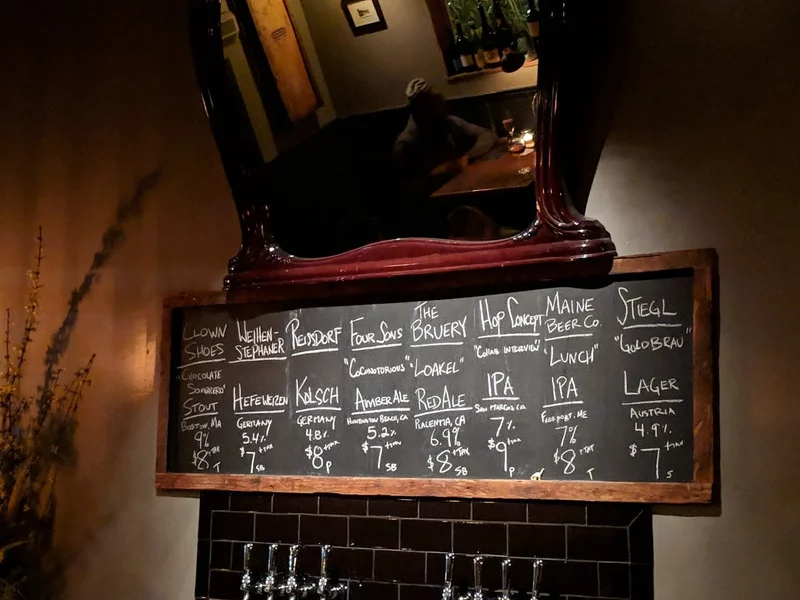 CLOWN
SHOES
"CHOCOLATE
SOMBRERO"
STOUT
BOSTON, MA
9%
$8 +TAX
T
WEIHEN-
STEPHANER
HEFEWEIZEN
GERMANY
5.4%
$7 +TAX
SB
REISSDORF
KÖLSCH
GERMANY
4.8%
$8 +TAX
P
FOUR SONS
"COCONOTORIOUS"
AMBER ALE
HUNTINGTON BEACH, CA
5.2%
$7 +TAX
SB
THE
BRUERY
"LOAKEL"
RED ALE
PLACENTIA, CA
6.9%
$8 +TAX
SB
HOP CONCEPT
"COLLAB INTERVIEW"
IPA
SAN MARCOS CA
7%
$9 +TAX
P
MAINE
BEER CO.
"LUNCH"
IPA
FREEPORT, ME
7%
$8 +TAX
T
STIEGL
"GOLDBRAU"
LAGER
AUSTRIA
4.9%
$7 +TAX
S